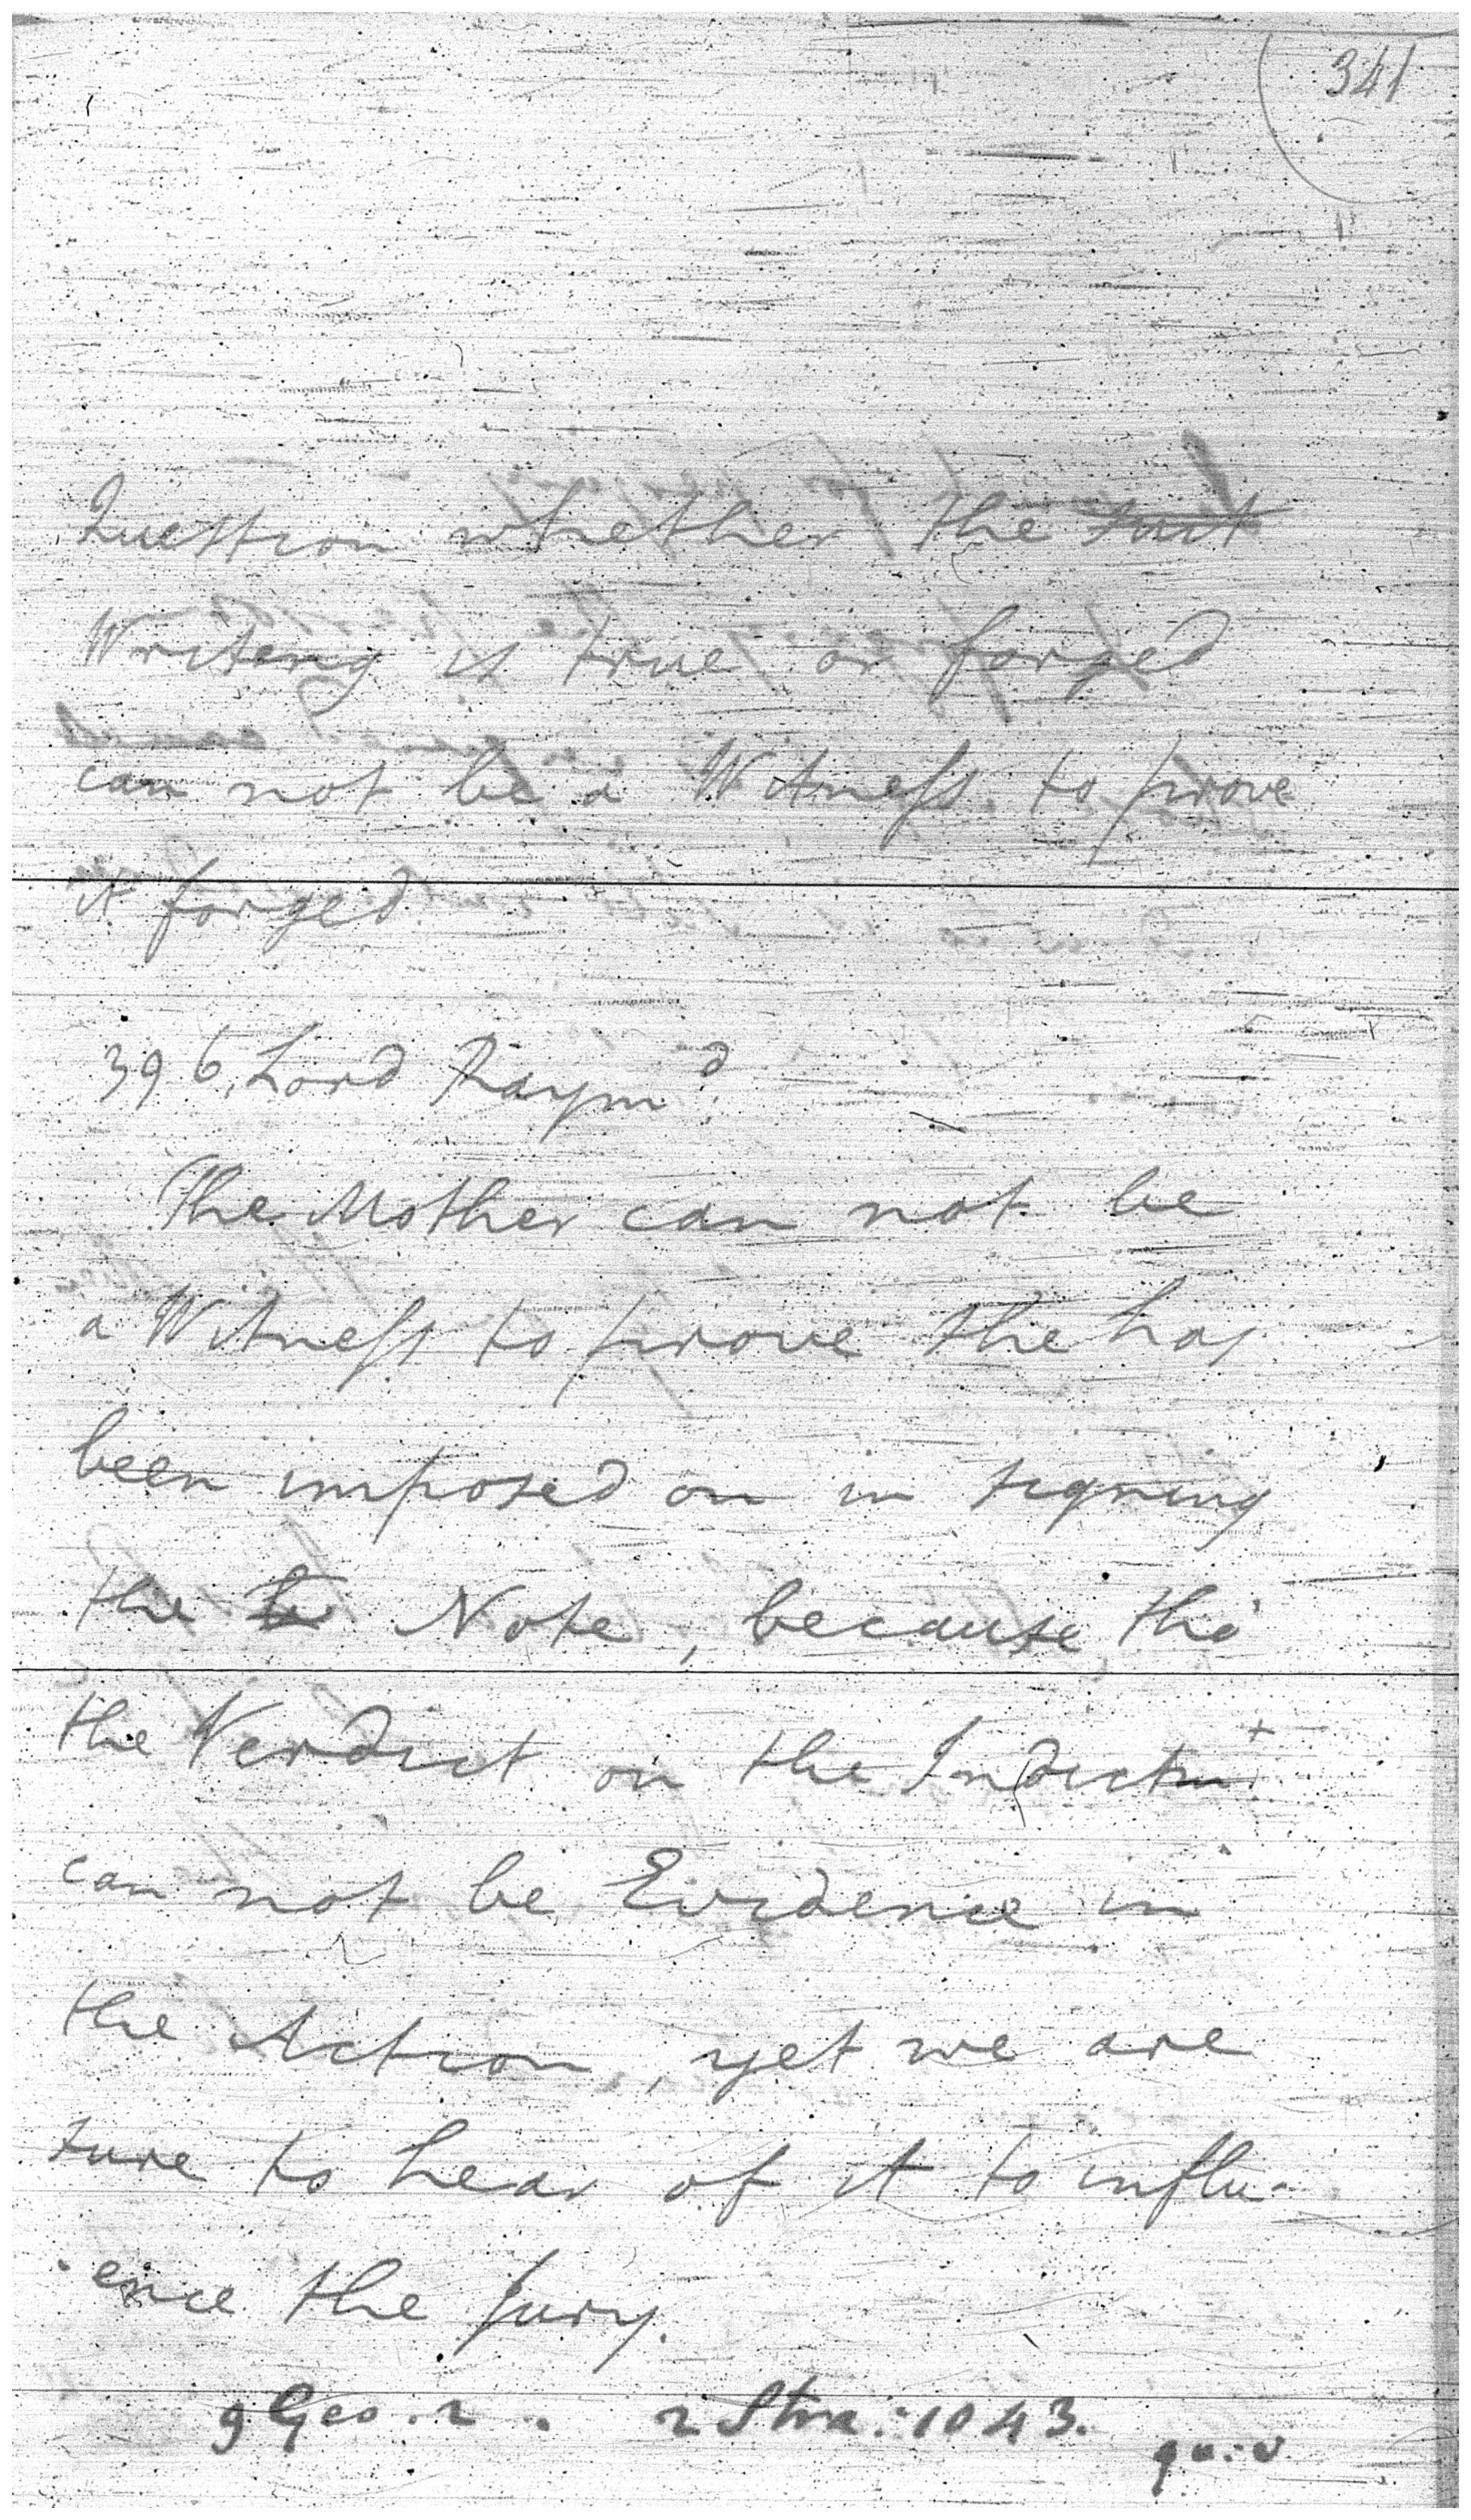 341
Question whether the ~~suit~~
Writeng is true or forged
can not be a Witness to prove
it forged
396. Lord Raym^d.
The Mother can not be
a Witness to prove the has
been imposed on in signing
the ~~be~~ Note, because tho'
the Verdict on the Indictm^t.
can not be Evidence in
the Action, yet we are
sure to hear of it to influ-
-ence the Jury.
9 Geo. 2. 2 Stra: 1043.
qu: v